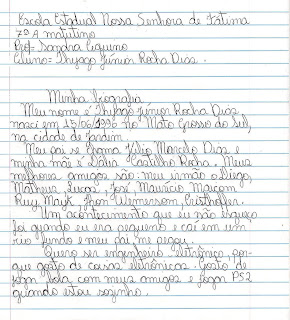 Escola Estadual Nossa Senhora de Fátima
7º A matutino
Prof- Sandra Equino
Aluno= Thyago Júnior Rocha Diaz.
Minha biografia
Meu nome é Thyago Júnior Rocha Diaz
nasci em 15/06/1996 no Mato Grosso do Sul,
na cidade de Jardim.
Meu pai se chama Júlio Marcelo Diaz e
minha mãe é Dalva Castilho Rocha. Meus
melhores amigos são: meu irmão o Diego,
Matheus, Lucas, José Maurício Maicom
Ruy Mayk, Jhon Wemerson, Cristhofer.
Um acontecimento que eu não esqueço
foi quando eu era pequeno e caí em um
rio fundo e meu pai me pegou.
Quero ser engenheiro eletrônico, por-
que gosto de coisas eletrônicas. Gosto de
jogar bola com meus amigos e jogar PS2
quando estou sozinho.